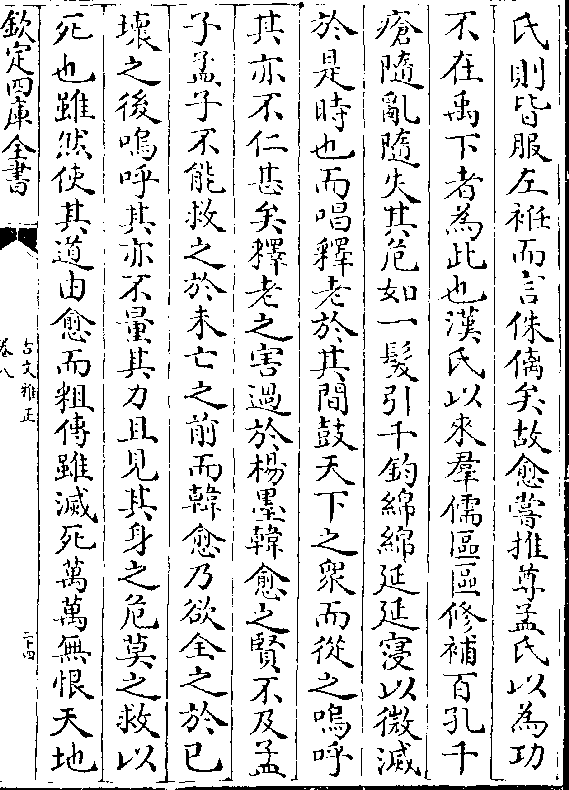 氏則皆服左袵而言侏儷矣故愈嘗推尊孟氏以為功
不在禹下者為此也漢氏以來羣儒區區修補百孔千
瘡隨亂隨失其危如一髮引千鈞綿綿延延寖以微滅
於是時也而唱釋老於其間鼓天下之衆而從之嗚呼
其亦不仁甚矣釋老之害過於楊墨韓愈之賢不及孟
子孟子不能救之於未亡之前而韓愈乃欲全之於已
壞之後嗚呼其亦不量其力且見其身之危莫之救以
死也雖然使其道由愈而粗傳雖滅死萬萬無恨天地
欽定四庫全書
古文雅正
卷八
二十四